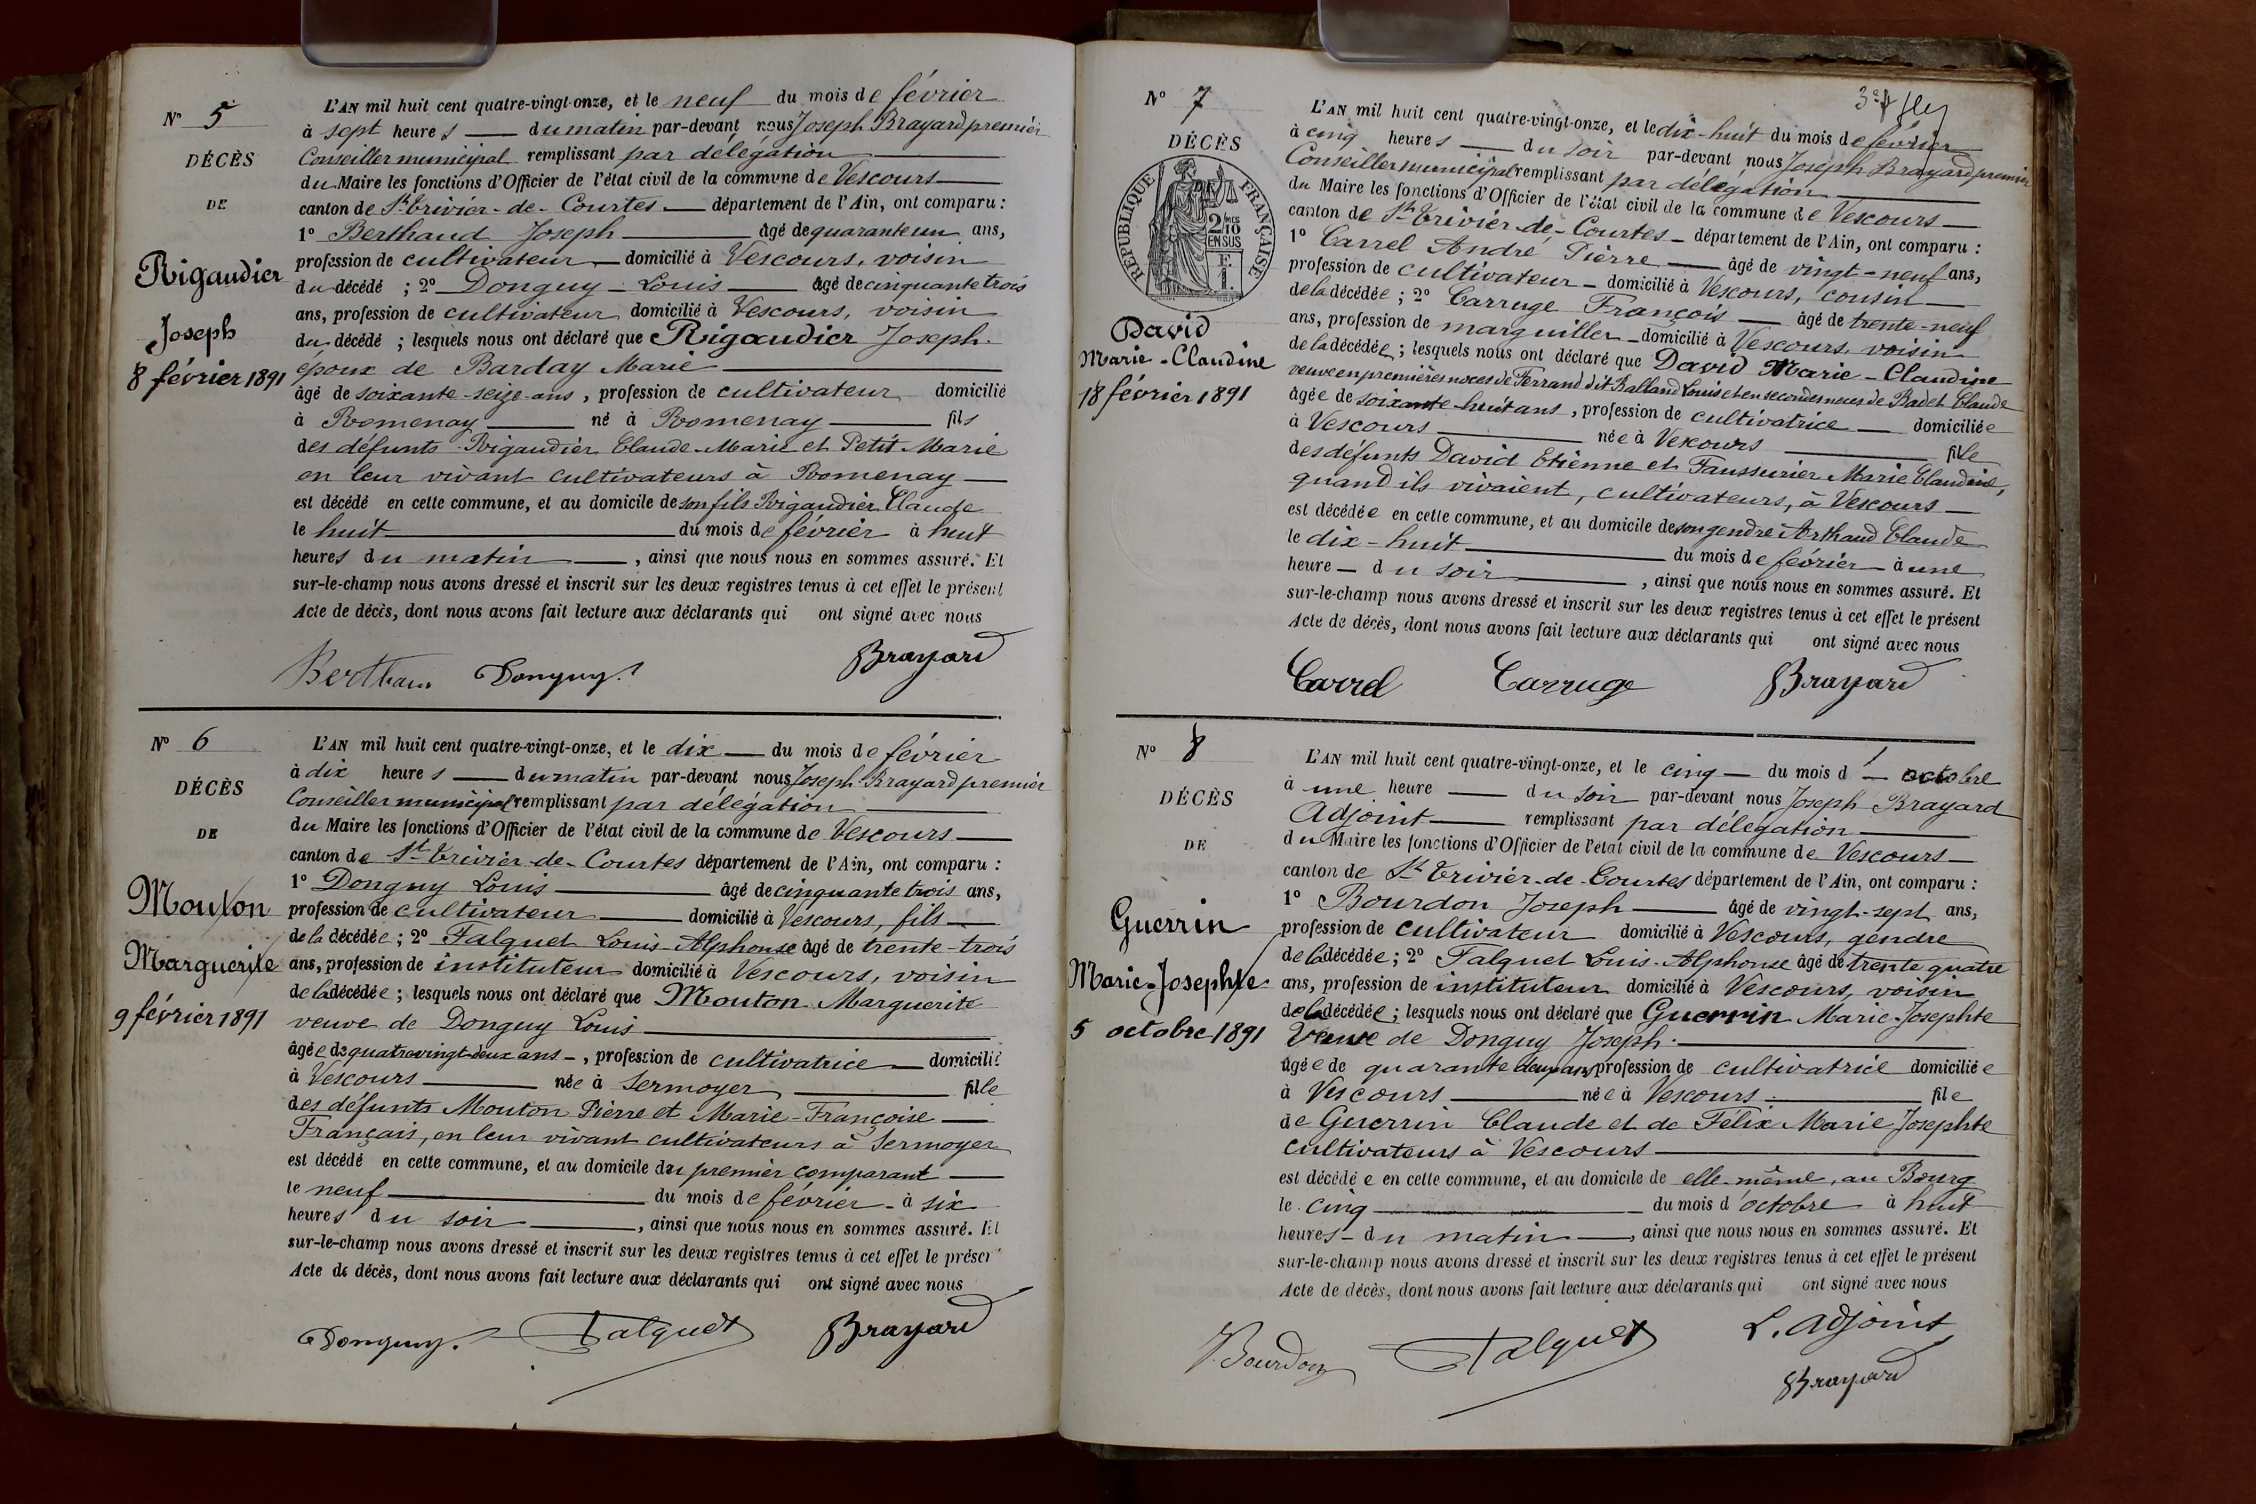 N° 5
DÉCÈS
DE
Rigaudier
Joseph
8 février 1891
L'AN mil huit cent quatre-vingt-onze, et le neuf du mois de février
à sept heures du matin par-devant nous Joseph Brayard premier
Conseiller municipal remplissant par délégation
du Maire les fonctions d'Officier de l'état civil de la commune de Vescours
canton de St Trivier-de-Courtes département de l'Ain, ont comparu :
1° Berthaud Joseph âgé de quarante un ans,
profession de cultivateur domicilié à Vescours, voisin
du décédé ; 2° Donguy Louis âgé de cinquante trois
ans, profession de cultivateur domicilié à Vescours, voisin
du décédé ; lesquels nous ont déclaré que Rigaudier Joseph
époux de Barday Marie
âgé de soixante-seize ans, profession de cultivateur domicilié
à Romenay né à Romenay fils
des défunts Rigaudier Claude-Marie et Petit Marie
en leur vivant cultivateurs à Romenay
est décédé en cette commune, et au domicile de son fils Rigaudier Claude
le huit du mois de février à huit
heures du matin, ainsi que nous nous en sommes assuré. Et
sur-le-champ nous avons dressé et inscrit sur les deux registres tenus à cet effet le présent
Acte de décès, dont nous avons fait lecture aux déclarants qui ont signé avec nous
Berthaud Donguy Brayard
N° 6
DÉCÈS
DE
Mouton
Marguerite
9 février 1891
L'AN mil huit cent quatre-vingt-onze, et le dix du mois de février
à dix heures du matin par-devant nous Joseph Brayard premier
Conseiller municipal remplissant par délégation
du Maire les fonctions d'Officier de l'état civil de la commune de Vescours
canton de St Trivier-de-Courtes département de l'Ain, ont comparu :
1° Donguy Louis âgé de cinquante trois ans,
profession de cultivateur domicilié à Vescours, fils
de la décédée ; 2° Falquet Louis-Alphonse âgé de trente-trois
ans, profession de instituteur domicilié à Vescours, voisin
de la décédée ; lesquels nous ont déclaré que Mouton Marguerite
veuve de Donguy Louis
âgée de quatrevingt-deux ans, profession de cultivatrice domicilié
à Vescours née à Sermoyer fille
des défunts Mouton Pierre et Marie-Françoise
Français, en leur vivant cultivateurs à Sermoyer
est décédé en cette commune, et au domicile du premier comparant
le neuf du mois de février à six
heures du soir, ainsi que nous nous en sommes assuré. Et
sur-le-champ nous avons dressé et inscrit sur les deux registres tenus à cet effet le présen
Acte de décès, dont nous avons fait lecture aux déclarants qui ont signé avec nous
Donguy. Falquet Brayard
N° 7
DÉCÈS
RÉPUBLIQUE FRANÇAISE
2/10
EN SUS
David
Marie-Claudine
18 février 1891
L'AN mil huit cent quatre-vingt-onze, et le dix-huit du mois de février
à cinq heures du soir par-devant nous Joseph Brayard premier
Conseiller municipal remplissant par délégation
du Maire les fonctions d'Officier de l'état civil de la commune de Vescours
canton de St Trivier-de-Courtes département de l'Ain, ont comparu :
1° Carrel André Pierre âgé de vingt-neuf ans,
profession de cultivateur domicilié à Vescours, cousin
de la décédée ; 2° Carruge François âgé de trente-neuf
ans, profession de marguiller domicilié à Vescours, voisin
de la décédée ; lesquels nous ont déclaré que David Marie-Claudine
veuve en premières noces de Ferrand dit Balland Louis et en secondes noces de Badet Claude
âgée de soixante-huit ans, profession de cultivatrice domiciliée
à Vescours née à Vescours fille
des défunts David Etienne et Faussurier Marie Claudine,
quand ils vivaient, cultivateurs, à Vescours
est décédée en cette commune, et au domicile de son gendre Arthaud Claude
le dix-huit du mois de février à une
heure du soir, ainsi que nous nous en sommes assuré. Et
sur-le-champ nous avons dressé et inscrit sur les deux registres tenus à cet effet le présent
Acte de décès, dont nous avons fait lecture aux déclarants qui ont signé avec nous
Carrel Carruge Brayard
N° 8
DÉCÈS
DE
Guerrin
Marie-Josephte
5 octobre 1891
L'AN mil huit cent quatre-vingt-onze, et le cinq du mois d'octobre
à une heure du soir par-devant nous Joseph Brayard
Adjoint remplissant par délégation
du Maire les fonctions d'Officier de l'état civil de la commune de Vescours
canton de St Trivier-de-Courtes département de l'Ain, ont comparu :
1° Bourdon Joseph âgé de vingt-sept ans,
profession de cultivateur domicilié à Vescours, gendre
de la décédée ; 2° Falquet Louis-Alphonse âgé de trente quatre
ans, profession de instituteur domicilié à Vescours, voisin
de la décédée ; lesquels nous ont déclaré que Guerrin Marie-Josephte
Veuve de Donguy Joseph
âgée de quarante deux ans profession de cultivatrice domiciliée
à Vescours née à Vescours file
de Guerrin Claude et de Félix Marie Josephte
cultivateurs à Vescours
est décédée en cette commune, et au domicile de elle-même, au Bourg
le cinq du mois d'octobre à huit
heures du matin, ainsi que nous nous en sommes assuré. Et
sur-le-champ nous avons dressé et inscrit sur les deux registres tenus à cet effet le présent
Acte de décès, dont nous avons fait lecture aux déclarants qui ont signé avec nous
J. Bourdon Falquet L. adjoint
Brayard